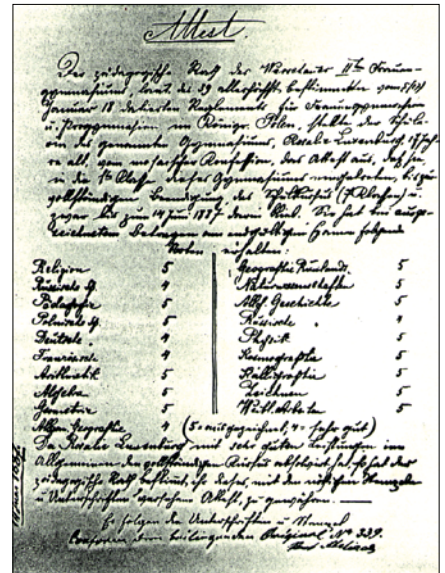 Attest.
Der pädagogische Rat des Warschauer IIten Frauen-
gymnasiums, laut des allerhöchst bestimmten vom
Januar 18 datierten Reglements für Frauengymnasien
u. Progymnasien im Königr. Polen, stellte der Schüle-
rin des genannten Gymnasiums, Rosalie Luxenburg, 17 Jah-
re alt, von mosaischer Konfession, das Attest aus, daß sie,
in die 1te Klasse dieses Gymnasiums eingetreten, bis zur
vollständigen Beendigung des Schulkursus (7 Klassen) u.
zwar bis zum 14 Juni 1887 darin blieb. Sie hat bei ausge-
zeichnetem Betragen am endgültigen Examen folgende
Noten erhalten:
Religion 5
Russische Sp. 4
Pädagogie 5
Polnische Sp. 5
Deutsche " 4
Französische 4
Arithmetik 5
Algebra 5
Geometrie 5
Allgem. Geographie 4
Geographie Russlands. 5
Naturwissenschaften 5
Allg. Geschichte 5
Russische " 4
Physik 5
Kosmographie 5
Kalligraphie 5
Zeichnen 5
Weibl. Arbeiten 5
(5 = ausgezeichnet, 4 = sehr gut)
Da Rosalie Luxenburg mit sehr guten Leistungen im
Allgemeinen den vollständigen Kursus absolviert hat, so hat der
pädagogische Rat bestimmt, ihr dieses, mit den nötigen Stempeln
u. Unterschriften versehene Attest, zu gewähren.
Es folgen die Unterschriften u. Stempel
Conform dem beiliegenden Original No 339.